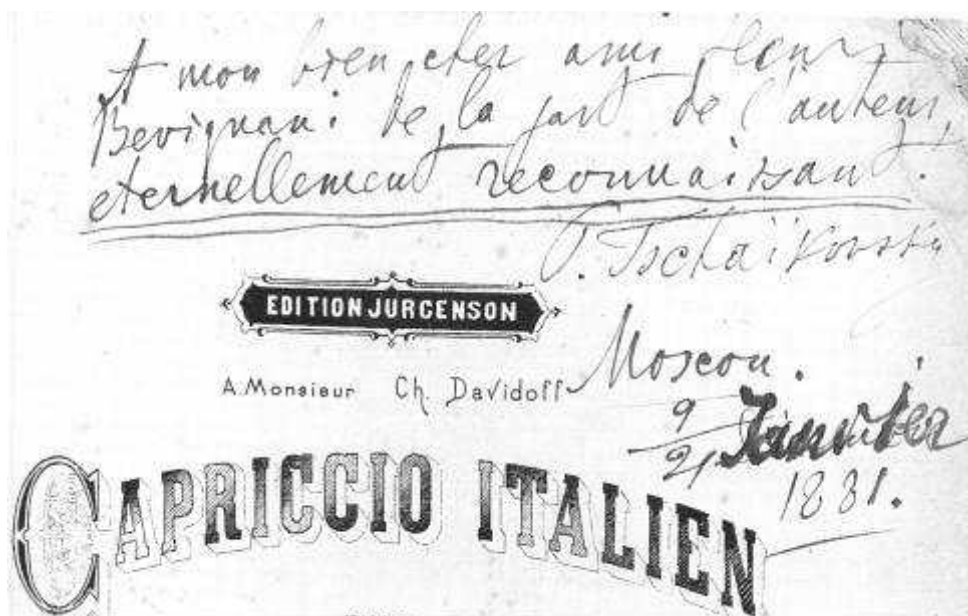 A mon bien cher ami
Bevignani de la part de l'auteur
eternellement reconnaissant.
P. Tschaïkovsky
EDITION JURGENSON
Moscou.
A Monsieur Ch. Davidoff
9
21 Janvier
1881.
CAPRICCIO ITALIEN